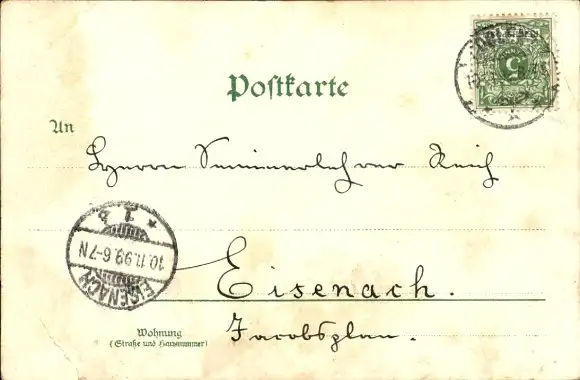 Postkarte
An
Herrn Seminarlehrer Reich
Eisenach.
Jacobsplan.
Wohnung
(Straße und Hausnummer)
EISENACH
10.11.99.6-7N
5